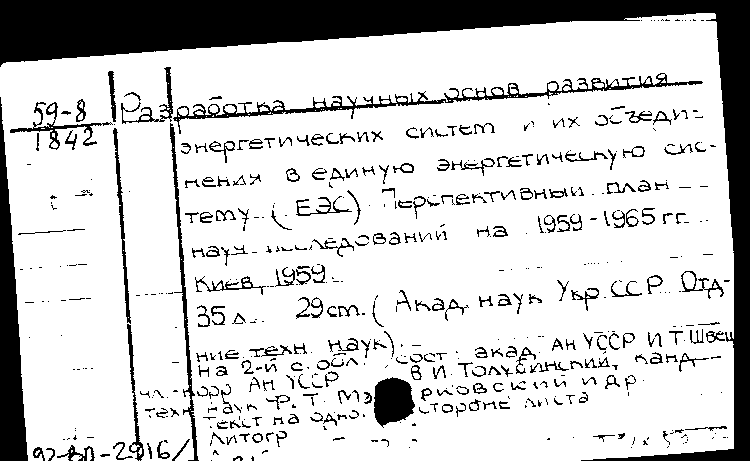 59-8
1842
Разработка научных основ развития
энергетических систем и их объеди-
нения в единую энергетическую сис-
тему (ЕЭС) Перспективный план
науч исследований на 1959-1965 гг
Киев, 1959
35 л. 29 cm. (Акад наук Укр. ССР Отд-
ние техн наук)
на 2-й с обл. сост: акад АН УССР И Т Швец
чл.-корр АН УССР В И. Толубинский, канд
техн наук Ф. Т. и др.
Текст на одно стороне листа
Литогр
92-ВП-2916/